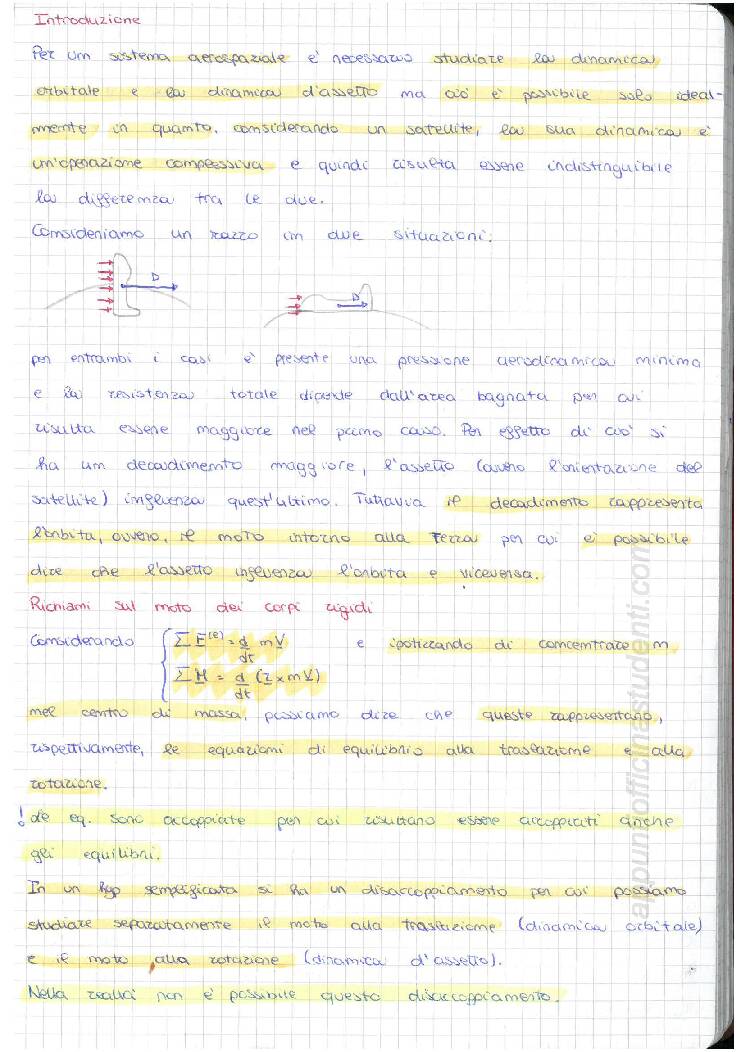 Introduzione
Per un sistema aerospaziale è necessario studiare la dinamica
orbitale e la dinamica d'assetto ma ciò è possibile solo ideal-
mente in quanto, considerando un satellite, la sua dinamica è
un'operazione complessiva e quindi risulta essere indistinguibile
la differenza tra le due.
Consideriamo un razzo in due situazioni:
D D
per entrambi i casi è presente una pressione aerodinamica minima
e la resistenza totale dipende dall'area bagnata per cui
risulta essere maggiore nel primo caso. Per effetto di ciò si
ha un decadimento maggiore, l'assetto (ovvero l'orientazione del
satellite) influenza quest'ultimo. Tuttavia il decadimento rappresenta
l'orbita, ovvero, il moto intorno alla Terra per cui è possibile
dire che l'assetto influenza l'orbita e viceversa.
Richiami sul moto dei corpi rigidi
Considerando { ∑ F^(e) = d/dt m V e ipotizzando di concentrare m
∑ M = d/dt (r × m V)
nel centro di massa, possiamo dire che queste rappresentano,
rispettivamente, le equazioni di equilibrio alla traslazione e alla
rotazione.
! Le eq. sono accoppiate per cui risultano essere accoppiati anche
gli equilibri.
In un hyp semplificata si ha un disaccoppiamento per cui possiamo
studiare separatamente il moto alla traslazione (dinamica orbitale)
e il moto alla rotazione (dinamica d'assetto).
Nella realtà non è possibile questo disaccoppiamento.
appunti.officinestudenti.com